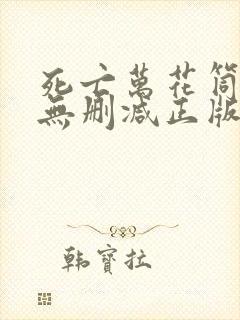 死亡萬花筒
無删减正版
韩寶拉